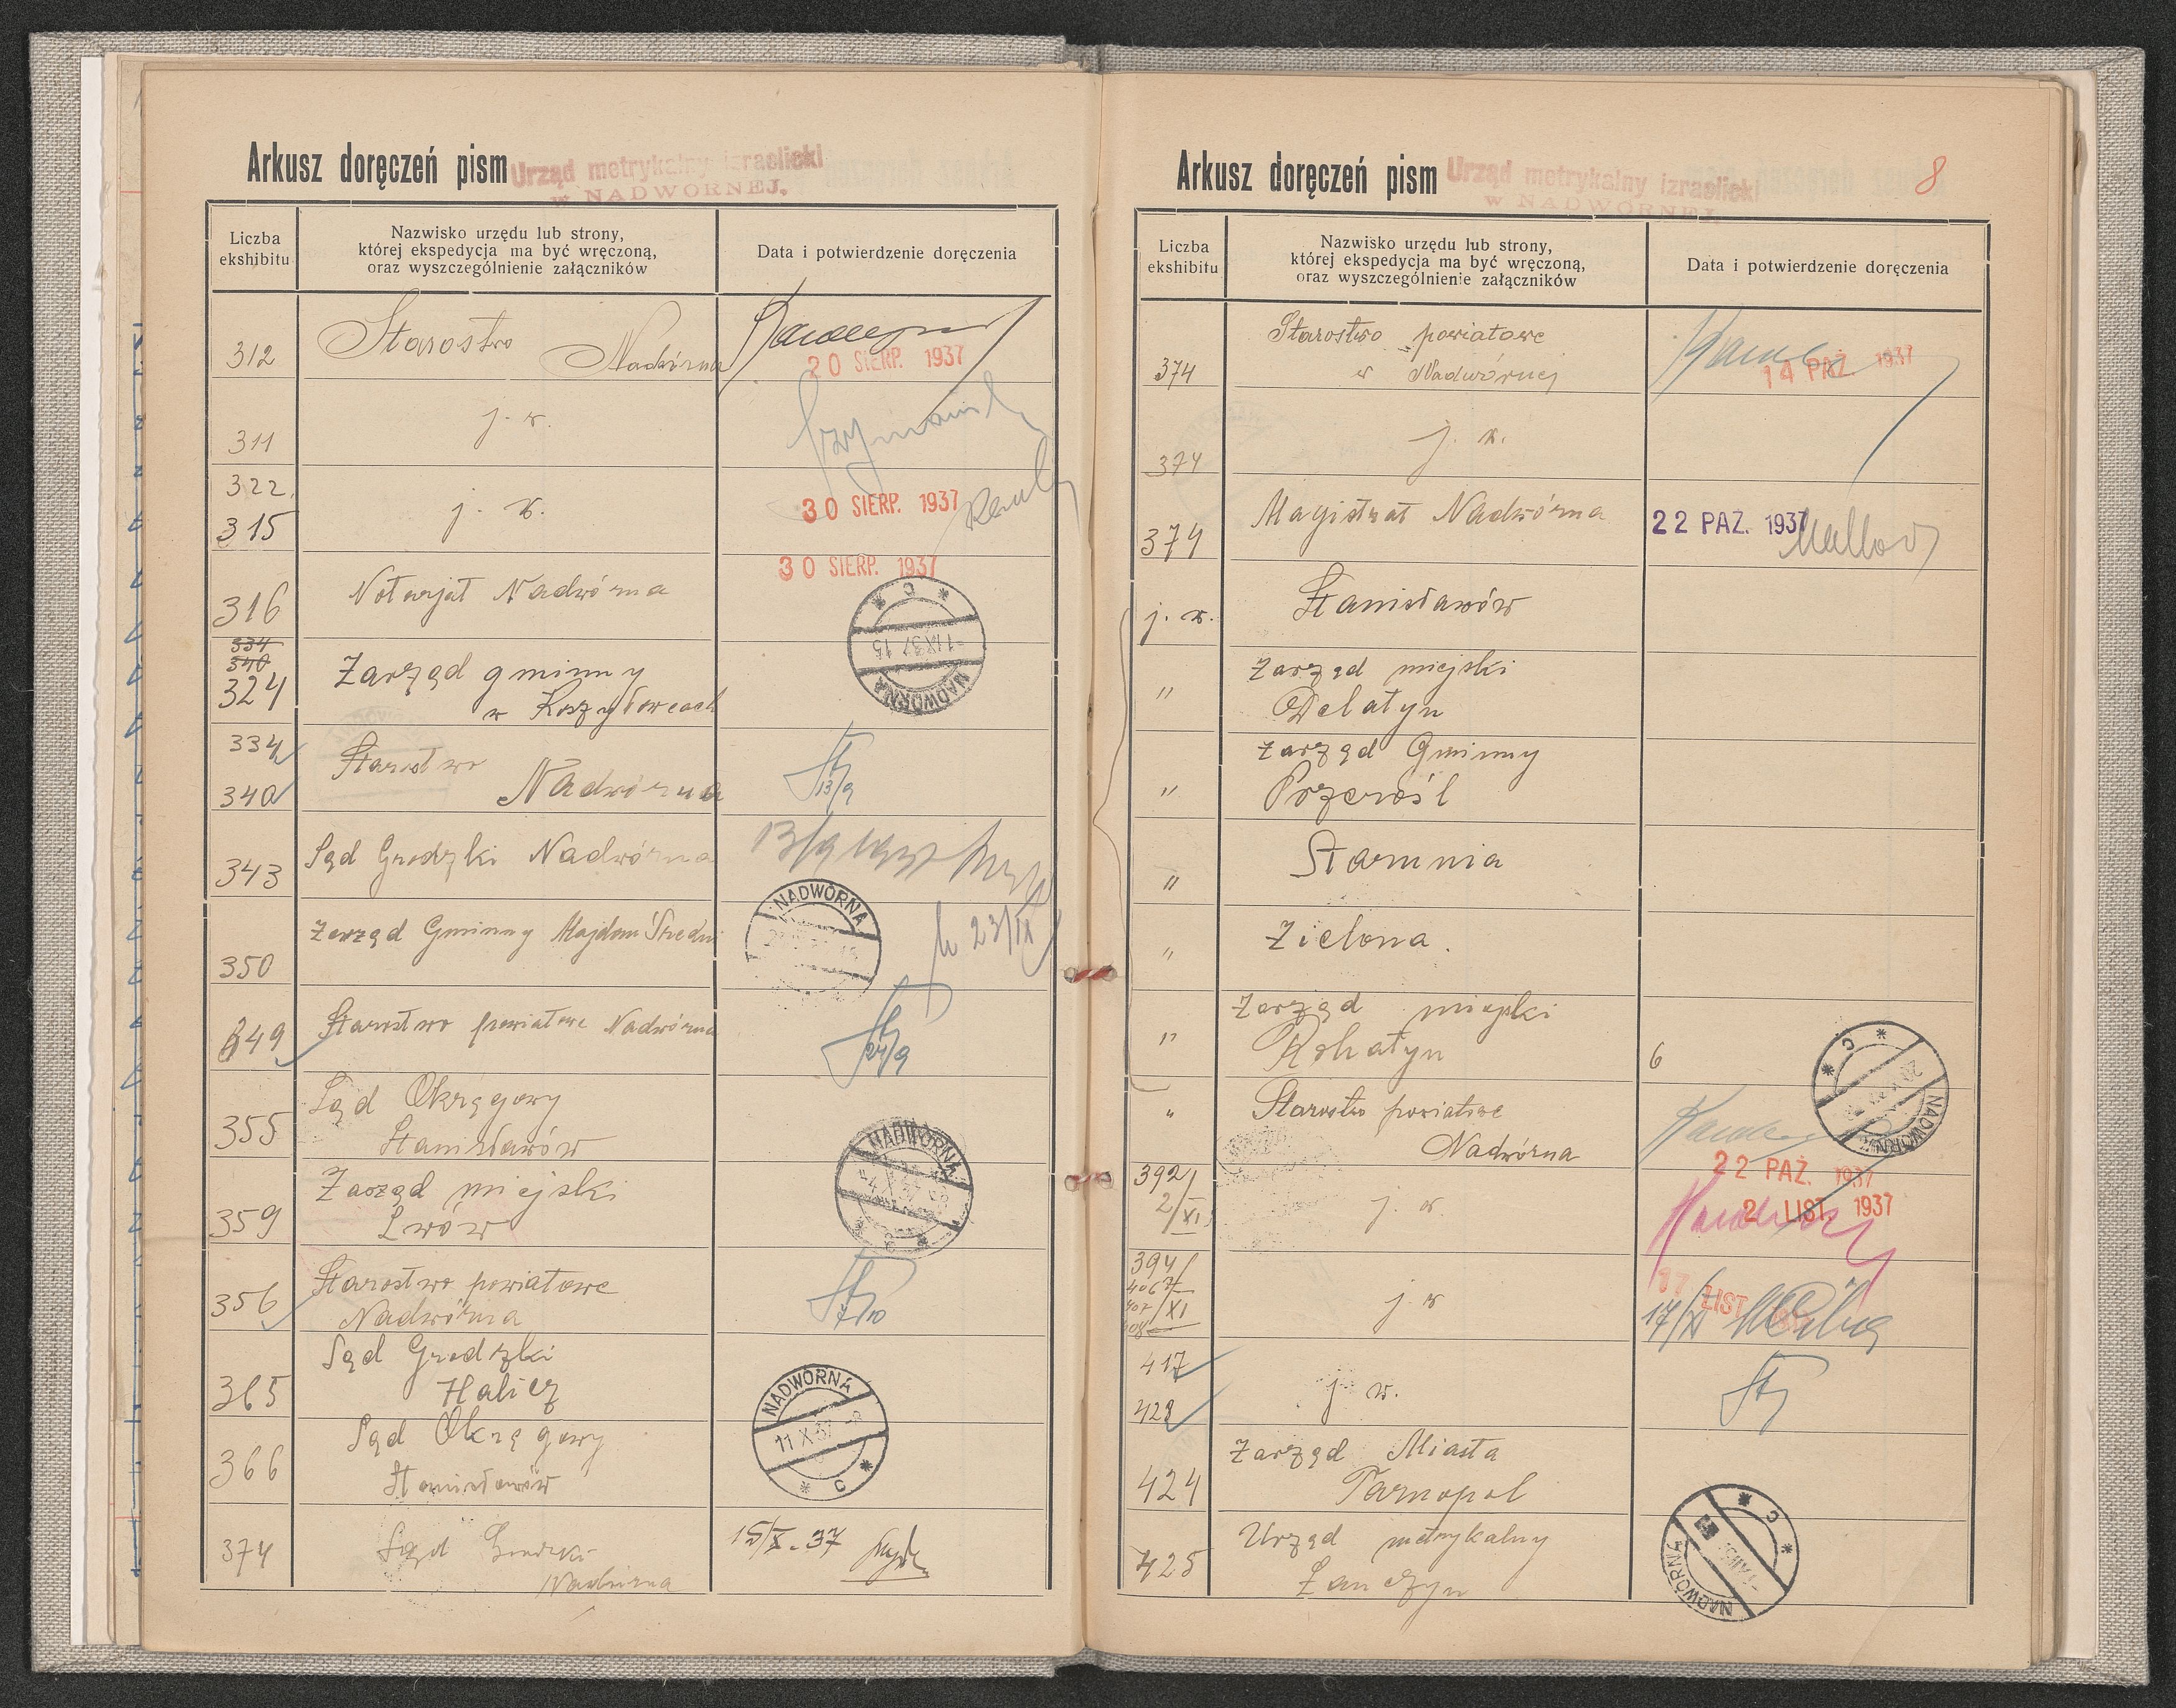 Arkusz doręczeń pism Urząd metrykalny izraelicki
w NADWÓRNEJ.
Liczba ekshibitu
Nazwisko urzędu lub strony,
której ekspedycja ma być wręczoną,
oraz wyszczególnienie załączników
Data i potwierdzenie doręczenia
312 Starostwo Nadwórna
20 SIERP. 1937
311 j. w.
322
315 j. w. 30 SIERP. 1937
30 SIERP. 1937
316 Notarjat Nadwórna
NADWÓRNA -1.IX.37 15 C
334
340
324 Zarząd gminny
w
334
340 Starostwo Nadwórna
13/9
343 Sąd Grodzki Nadwórna
13/9 1937
350 Zarząd Gminny Majdan Średni
NADWÓRNA
23/IX
349 Starostwo powiatowe Nadwórna
24/9
355 Sąd Okręgowy
Stanisławów
359 Zarząd miejski
Lwów
NADWÓRNA
356 Starostwo powiatowe
Nadwórna
7/10
365 Sąd Grodzki
Halicz
NADWÓRNA 11 X 37 C
366 Sąd Okręgowy
Stanisławów
374 Sąd Grodzki
Nadwórna
15/X. 37
Arkusz doręczeń pism Urząd metrykalny izraelicki
w NADWÓRNEJ.
8
Liczba ekshibitu
Nazwisko urzędu lub strony,
której ekspedycja ma być wręczoną,
oraz wyszczególnienie załączników
Data i potwierdzenie doręczenia
374 Starostwo powiatowe
w Nadwórnej
14 PAŹ. 1937
374 j. w.
374 Magistrat Nadwórna 22 PAŹ. 1937
j. w. Stanisławów
" Zarząd miejski
Delatyn
" Zarząd Gminny
Przerośl
" Starunia
" Zielona.
" Zarząd miejski
Rohatyn 6
NADWÓRNA C
" Starostwo powiatowe
Nadwórna
22 PAŹ. 1937
392/
2/XI j. w.
2 LIST. 1937
394/
406
407/XI
408 j. w
17 LIST
17/XI
417 j. w.
423
424 Zarząd Miasta
Tarnopol
425 Urząd metrykalny
Łanczyn
NADWÓRNA C